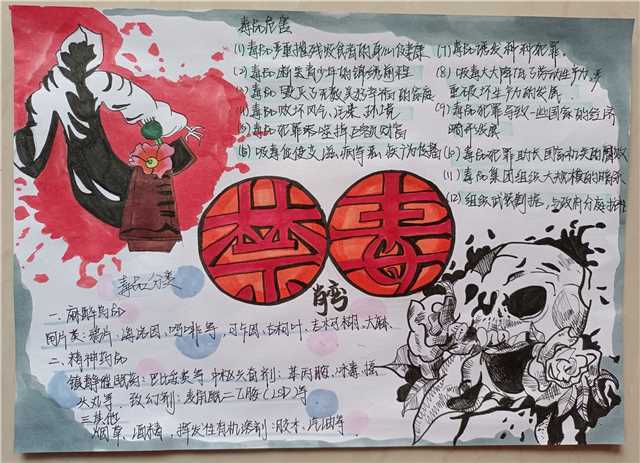 毒品危害
(1)毒品严重摧残吸食者的身心健康
(2)毒品断送青少年的锦绣前程
(3)毒品毁灭了无数美好幸福的家庭
(4)毒品败坏风气,污染环境
(5)毒品犯罪吸空挥巨额财富
(6)吸毒促使艾滋病传播,贻害
(7)毒品诱发种种犯罪。
(8)吸毒大大降低了劳动生产力,严
重破坏生产力的发展
(9)毒品犯罪导致一些国家的经济
畸形发展
(10)毒品犯罪助长国家机关的腐败
(11)毒品集团组织大规模的
(12)组织武装割据,与政府分庭抗礼
禁毒
毒品分类
一、麻醉药品
阿片类:鸦片、海洛因、吗啡等,可卡因、古柯叶、古柯糊、大麻.
二、精神药品
镇静催眠药:巴比妥类等 中枢兴奋剂:苯丙胺、冰毒、摇
头丸等、致幻剂:麦角酰二乙胺(LSD)等
三、其他
烟草、酒精、挥发性有机溶剂:胶水、汽油等.